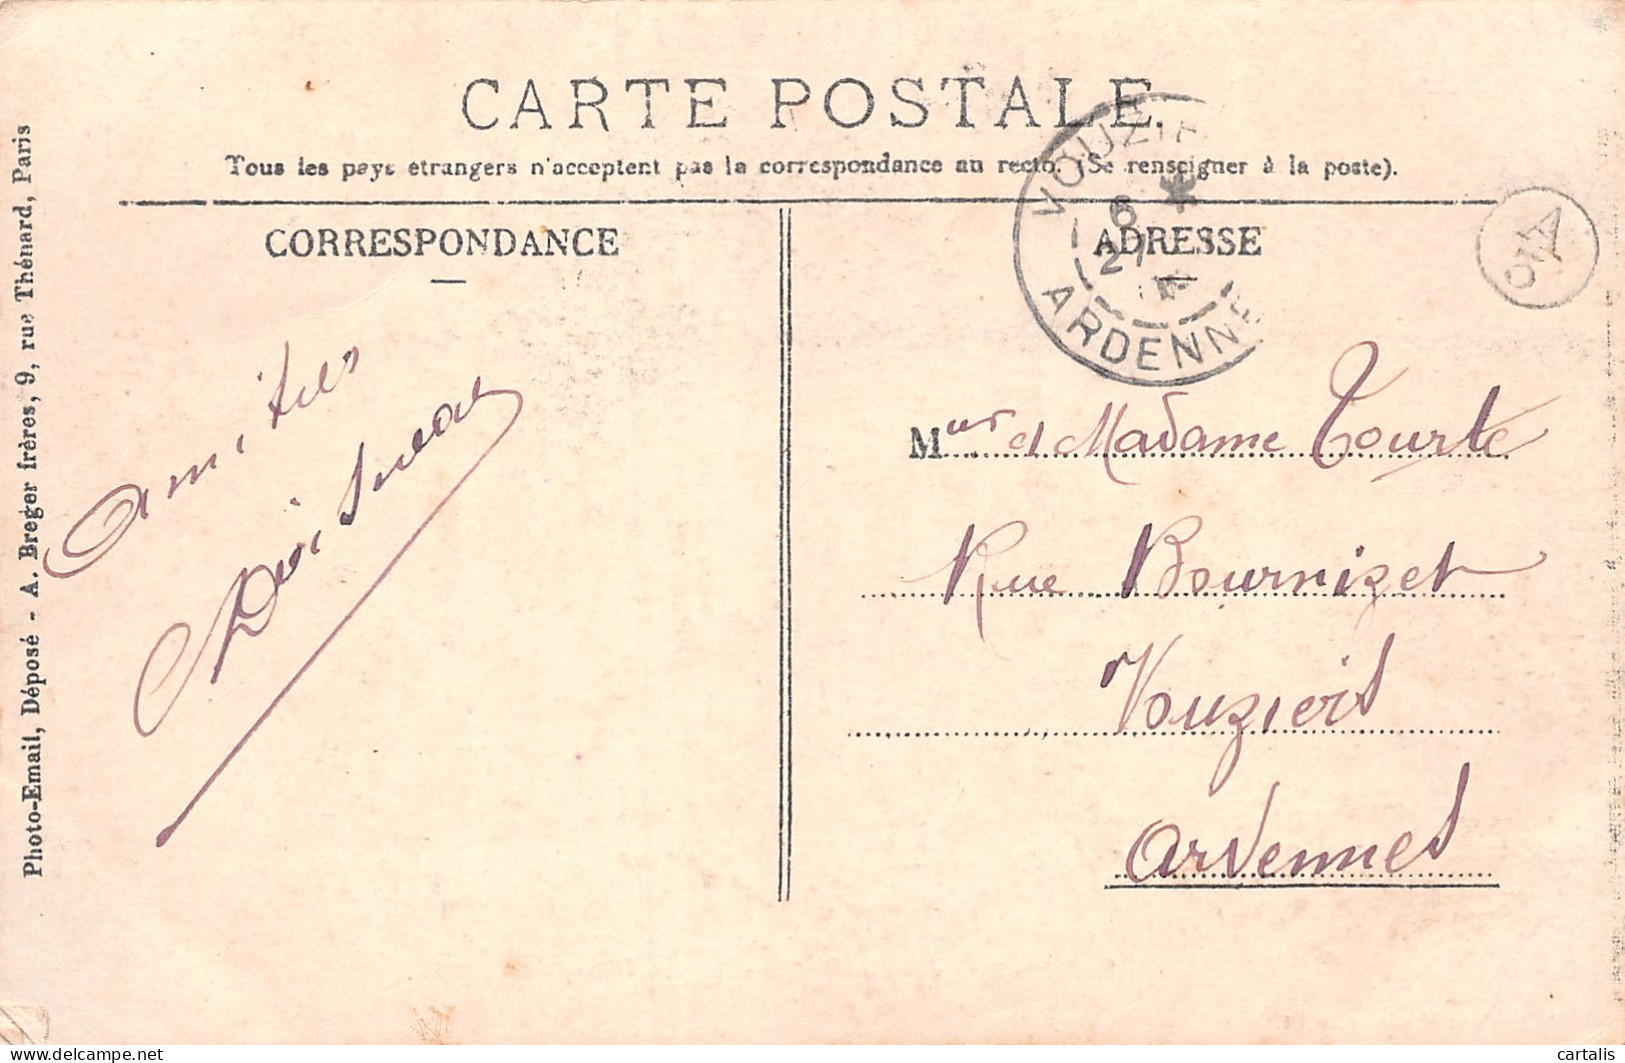 CARTE POSTALE.
Tous les pays etrangers n'acceptent pas la correspondance au recto. (Se renseigner à la poste).
CORRESPONDANCE
ADRESSE
VOUZIE
6 *
21
ARDENNE
Photo-Email, Déposé - A. Breger frères, 9, rue Thénard, Paris
Amitiés
Meur et Madame Tourte
Rue Bournizet
Vouziers
Ardennes
delcampe.net
cartalis